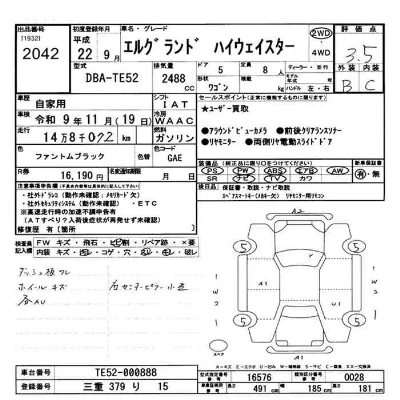 出品番号 初度登録年月 車名・グレード 評価点
[1932] 平成 エルグランド ハイウェイスター 2WD 3.5
2042 22年 9月 4WD
型式 排気量 ドア 定員 外装 内装
DBA-TE52 2488 cc 5 8人 B C
形状 ワゴン ハンドル 左・右
車歴 自家用 シフト IAT セールスポイント(正常に機能するものに限ります)
車検 令和 9年 11月(19日) エアコン WAAC ★ユーザー買取
走行 14万8千072km 燃料 ガソリン ●アラウンドビューカメラ ●前後クリアランスソナー
●リヤモニター ●両側リヤ電動スライドドア
色 ファントムブラック 色替 色コード GAE
R券 16,190円
装備品(純正品に限り○をつけてください) 新車保証書
PS PW ABS エアB AW 有・無
SR ナビ TV カワ
後日品 保証書・取説・ナビ取説
スペアスマートキー(メカキー欠) リヤモニター用リモコン
注意事項申告欄
・社外ドラレコ(動作未確認・メモリカード欠)
・社外セキュリティシステム(動作未確認) ・ETC
※高速走行時の加速不調申告有
(ATすべり?入荷後症状が再発せず未確認)
修復歴 有〔箇所 〕
検査員記入欄 FW キズ・飛石・ヒビ割・リペア跡・×要
内装 キズ・汚・コゲ・穴・ヨレ・キレ・破れ
ダッシュ板ワレ
ホイールキズ
各AU
右センターピラー小凹
A2
S S
W2 1 W2
A1 U1
S S
スペア
A1
A=キズ E=エクボ U=凹み W=補修跡 S=サビ C=腐食 X=交換済
車台番号 TE52-000888 型式指定番号 16576 類別区分番号 0028
登録番号 三重 379 り 15 長さ 491 cm 幅 185 cm 高さ 181 cm